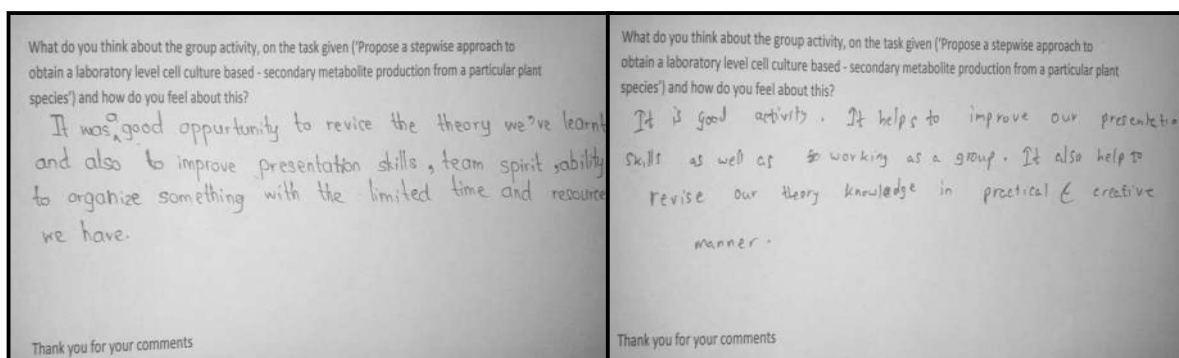 What do you think about the group activity, on the task given ('Propose a stepwise approach to
obtain a laboratory level cell culture based - secondary metabolite production from a particular plant
species') and how do you feel about this?
It was a good oppurtunity to revice the theory we've learnt
and also to improve presentation skills, team spirit, ability
to organize something with the limited time and resource
we have.
Thank you for your comments
What do you think about the group activity, on the task given ('Propose a stepwise approach to
obtain a laboratory level cell culture based - secondary metabolite production from a particular plant
species') and how do you feel about this?
It is good activity. It helps to improve our presentatio
skills as well as working as a group. It also help to
revise our theory knowledge in practical & creative
manner.
Thank you for your comments